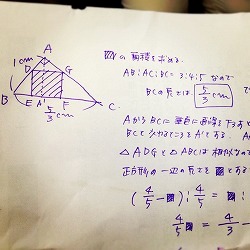 A
1cm
D
G
B
E
A'
F
C
5/3 cm
の面積を求める.
AB:AC:BC = 3:4:5 なので
BCの長さは. 5/3 cm
Aから BC に垂直に
BCと A'とする.
△ADGと△ABCは相似なので
正方形の一辺の長さを とする
(4/5 - ):4/5 = :
4/5 = 4/3